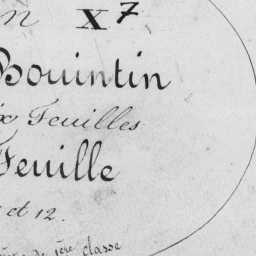 n X 7
Bouintin
x Feuilles
Feuille
et 12.
de 1ère classe